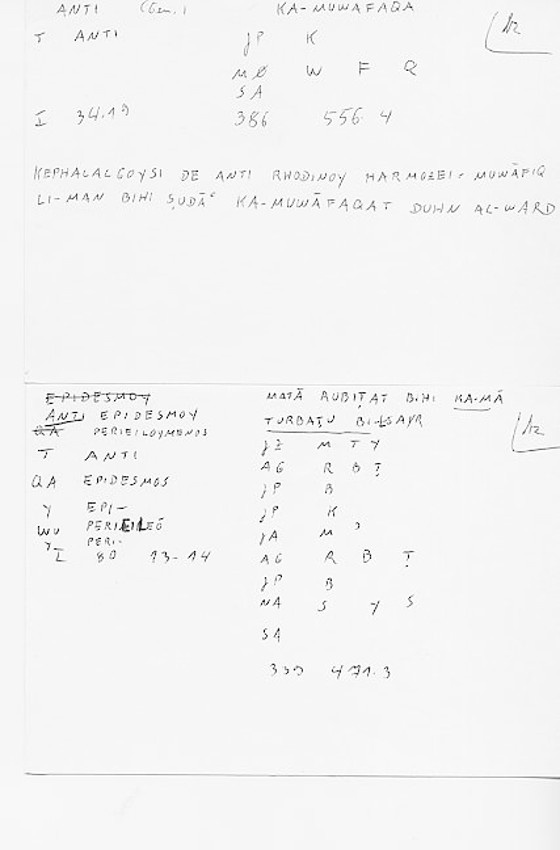 ANTI (Gen.) KA-MUWAFAQA
T ANTI JP K
MØ W F Q
SA
I 34.19 386 556 4
KEPHALALGOYSI DE ANTI RHODINOY HARMOZEI. MUWĀFIQ
LI-MAN BIHI ṢUDĀʿ KA-MUWĀFAQAT DUHN AL-WARD
EPIDESMOY MATĀ RUBIṬAT BIHI KA-MĀ
ANTI EPIDESMOY TURBAṬU BI-LSAYR
QA PERIEILOYMENOS
T ANTI JZ M T Y
AG R B Ṭ
QA EPIDESMOS JP B
Y EPI- JP K
WU PERIEILEŌ JA M ʾ
Y PERI-
I 80 13-14 AG R B Ṭ
JP B
NA S Y S
SA
339 471.3